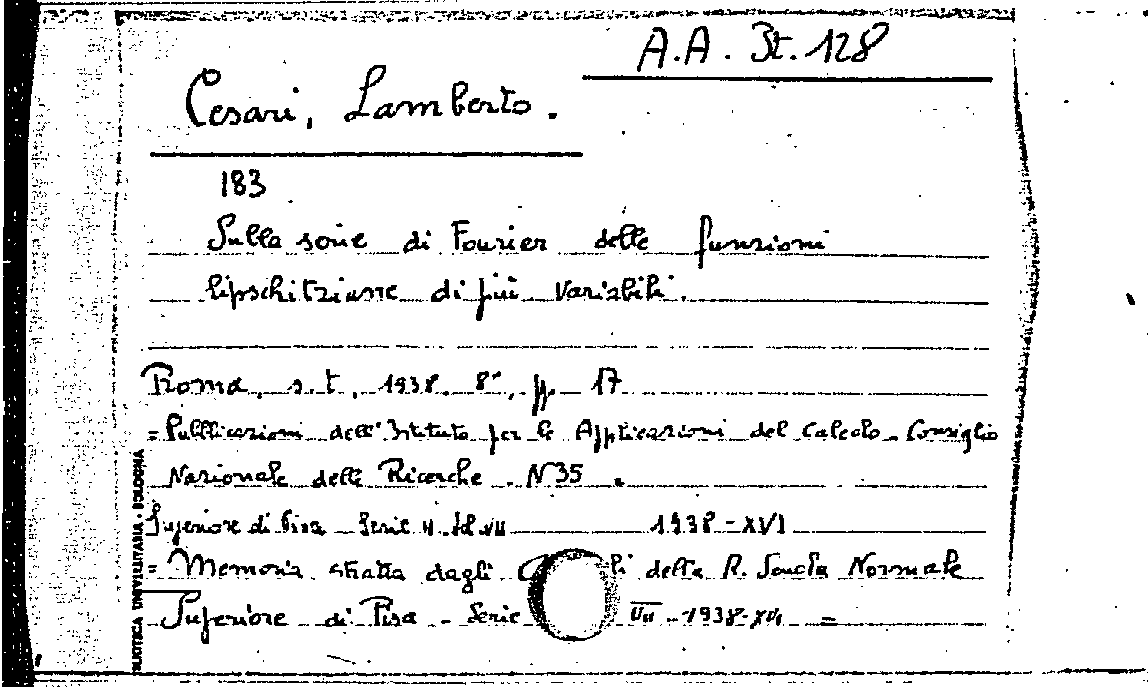 A.A. St. 128
Cesari, Lamberto.
183
Sulla serie di Fourier delle funzioni
lipschitziane di più variabili.
Roma, s.t., 1938. 8°, pp. 17
= Pubblicazioni dell'Istituto per le Applicazioni del Calcolo - Consiglio
Nazionale delle Ricerche. N 35.
Superiore di Pisa - Serie II. Vol. VII 1938-XVI
= Memoria estratta dagli della R. Scuola Normale
Superiore di Pisa - Serie VII - 1938-XVI =
BIBLIOTECA UNIVERSITARIA - BOLOGNA